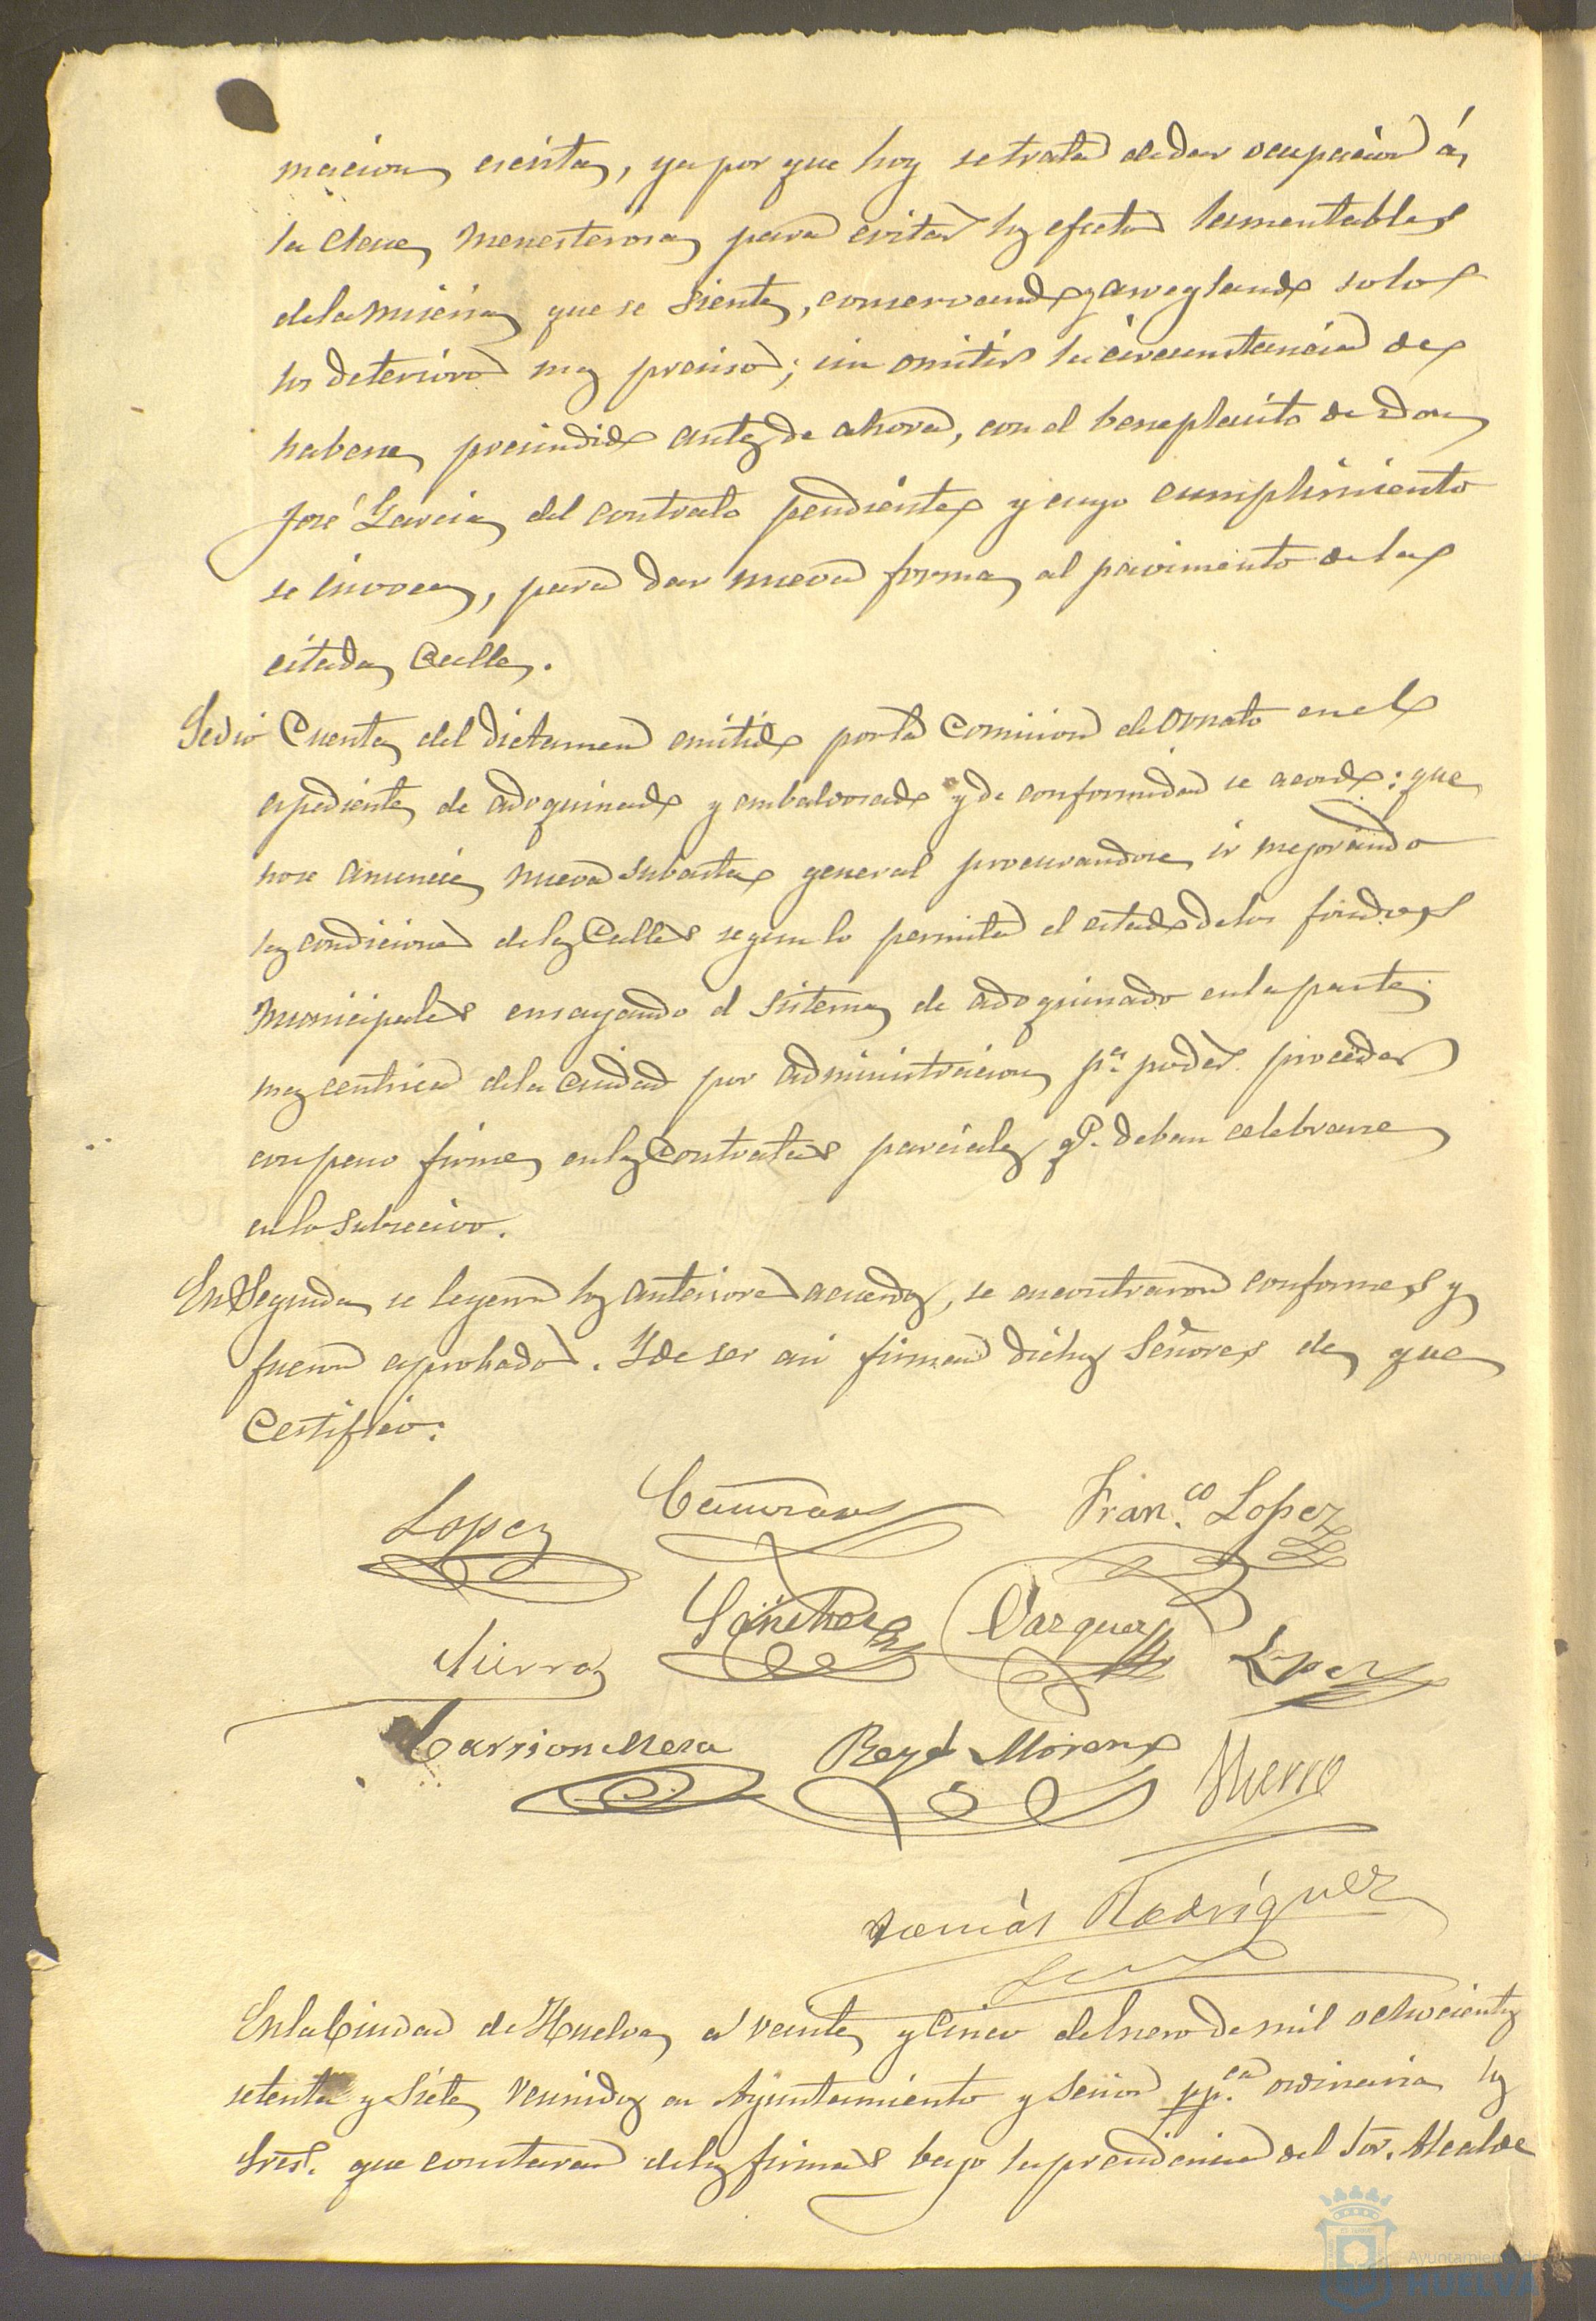 macion escrita, ya por que hoy se trata de dar ocupacion á
la clase menesterosa para evitar los efectos lamentables
de la miseria que se siente, conservando y arreglando solo
los deterioros mas precisos; sin omitir la circunstancia de
haberse prescindido antes de ahora, con el beneplacito de Don
José Garcia del contrato pendiente y cuyo cumplimiento
se invoca, para dar nueva forma al pavimento de la
citada Calle.
Se dió Cuenta del dictamen emitido por la Comision de Ornato en el
espediente de adoquinado y embaldosado y de conformidad se acordo: que
no se anuncie nueva subasta general procurandose ir mejorando
las condiciones de las Calles segun lo permita el estado de los fondos
Municipales ensayando el sistema de adoquinado en la parte
mas centrica de la Ciudad por administracion pª. poder proceder
con paso firme en las Contratas parciales q.e deban celebrarse
en lo subcecivo.
En Seguida se leyeron los anteriores acuerdos, se encontraron conformes y
fueron aprobados. Y de ser asi firman dichos Señores de que
Certifico:
Lopez Franco. Lopez
Sanchez Vazquez
Sierra Lopez
Carrion Mesa Rey Moreno Hierro
Tomás Rodriguez
En la Ciudad de Huelva a veinte y Cinco de Enero de mil ochocientos
setenta y Siete reunidos en Ayuntamiento y Sesion ppca. ordinaria los
Sres. que constaran de las firmas bajo la presidencia del Sor. Alcalde
Ayuntamiento
HUELVA